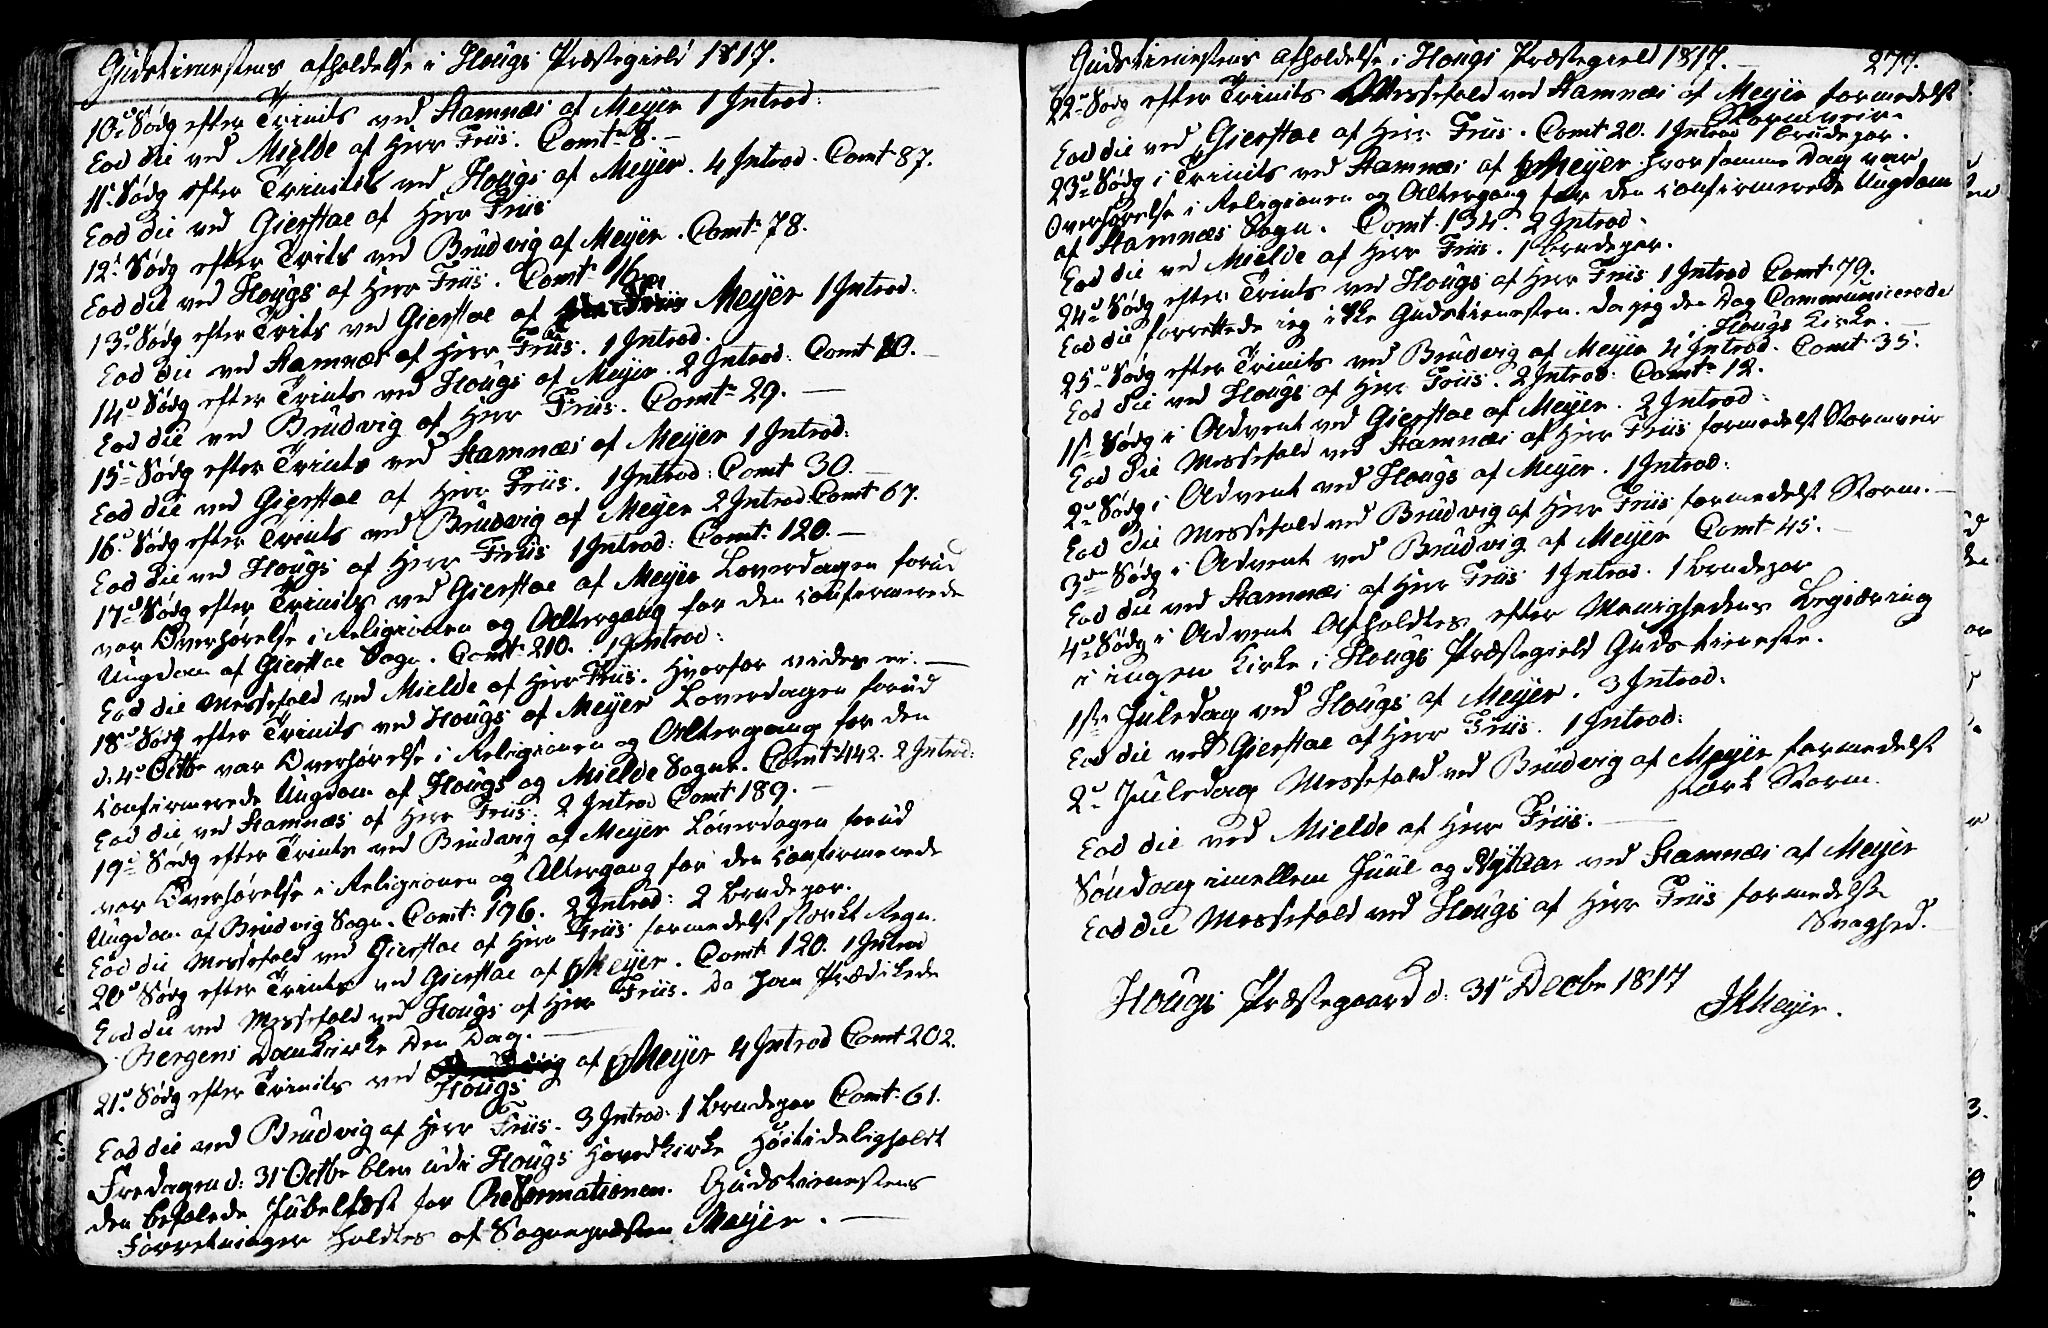 Gudstienestens afholdelse i Hougs Præstegield 1817.
10de Søndg efter Trinits ved Stamnæs af Meyer 1 Introd:
Eod die ved Mielde af Herr Friis. Comt: 8. —
11te Sødg efter Trinitis ved Hougs af Meyer. 4 Introd. Comt 87.
Eod die ved Gierstae af Herr Friis
12te Sødg efter Trits ved Brudvig af Meyer. Comt: 78.
Eod die ved Hougs af Herr Friis. Comt 16
13de Sødg efter Trits ved Gierstae af Meyer 1 Introd.
Eod die ved Stamnæs af Herr Friis. 1 Introd.
14de Sødg efter Trinits ved Hougs af Meyer. 2 Introd: Comt 10. —
Eod die ved Brudvig af Herr Friis. Comt: 29. —
15de Sødg efter Trinits ved Stamnæs af Meyer 1 Introd:
Eod die ved Gierstae af Herr Friis. 1 Introd: Comt 30. —
16de Sødg efter Trinits ved Brudvig af Meyer 2 Introd: Comt 67.
Eod die ved Hougs af Herr Friis 1 Introd: Comt: 120. —
17de Sødg efter Trinits ved Gierstae af Meyer Løverdagen forud
var Overhørelse i Religionen og Altergang for den Confirmerede
Ungdom af Gierstae Sogn. Comt: 210. 1 Introd:
Eod die Messefald ved Mielde af Herr Friis. Hvorfor vides ei. —
18de Sødg efter Trinits ved Hougs af Meyer Løverdagen forud
d: 4de Octbr var Overhørelse i Religionen og Altergang for den
Confirmerede Ungdom af Hougs og Mielde Sogne. Comt: 442. 2 Introd:
Eod die ved Stamnæs af Herr Friis. 2 Introd Comt 189. —
19de Sødg efter Trinits ved Brudvig af Meyer Løverdagen forud
var Overhørelse i Religionen og Altergang for den Confirmerede
Ungdom af Brudvig Sogn. Comt: 196. 2 Introd: 2 Brudepar.
Eod die Messefald ved Gierstae af Herr Friis formedelst stærkt Regn.
20de Sødg efter Trinits ved Gierstae af Meyer. Comt 120. 1 Introd
Eod die ved Messefald ved Hougs af Herr Friis. da han Prædikede
i Bergens Domkirke den Dag. —
21de Sødg efter Trinits ved Brudvig af Meyer 4 Introd Comt 202.
Hougs
Eod die ved Brudvig af Herr Friis. 3 Introd: 1 Brudepar Comt: 61.
Fredagen d: 31 Octbr blev udi Hougs Hovedkirke Høitideligholdt
den befalede Jubelfæst for Reformationen. Gudstienestens
Forretninger holdtes af Sognepræsten Meyer. —
Gudstienestens afholdelse i Hougs Præstegield 1817. — 277.
22de Sødg efter Trinits Messefald ved Stamnæs af Meyer formedelst
Stormveir.
Eod die ved Gierstae af Herr Friis. Comt 20. 1 Introd 1 Brudepar.
23de Sødg i Trinits ved Stamnæs af Meyer hvor samme Dag var
Overhørelse i Religionen og Altergang for den Confirmerede Ungdom
af Stamnæs Sogn. Comt. 134. 2 Introd.
Eod die ved Mielde af Herr Friis. 1 Brudepar.
24de Sødg efter Trinits ved Hougs af Herr Friis 1 Introd Comt 79.
Eod die forrettede ieg ikke Gudstienesten. Da jeg den Dag Communicerede
i Hougs Kirke. —
25de Sødg efter Trinits ved Brudvig af Meyer 4 Introd. Comt 35.
Eod die ved Hougs af Herr Friis. 2 Introd: Comt: 12.
1ste Sødg i Advent ved Gierstae af Meyer. 2 Introd:
Eod die Messefald ved Stamnæs af Herr Friis formedelst Stormveir
2de Sødg i Advent ved Hougs af Meyer. 1 Introd:
Eod die Messefald ved Brudvig af Herr Friis formedelst Storm. —
3die Sødg i Advent ved Brudvig af Meyer Comt 45. —
Eod die ved Stamnæs af Herr Friis 1 Introd. 1 Brudepar
4de Sødg i Advent Afholdtes efter Menighedens Begiæring
i ingen Kirke i Hougs Præstegield Gudstieneste.
1ste Juledag ved Hougs af Meyer. 3 Introd:
Eod die ved Gierstae af Herr Friis. 1 Introd:
2de Juledag Messefald ved Brudvig af Meyer formedelst
stærk Storm.
Eod die ved Mielde af Herr Friis. —
Søndag imellem Juul og Nytaar ved Stamnæs af Meyer
Eod die Messefald ved Hougs af Herr Friis formedelst
Svaghed. —
Hougs Præstegaard d: 31te Decbr 1817
JKMeyer.